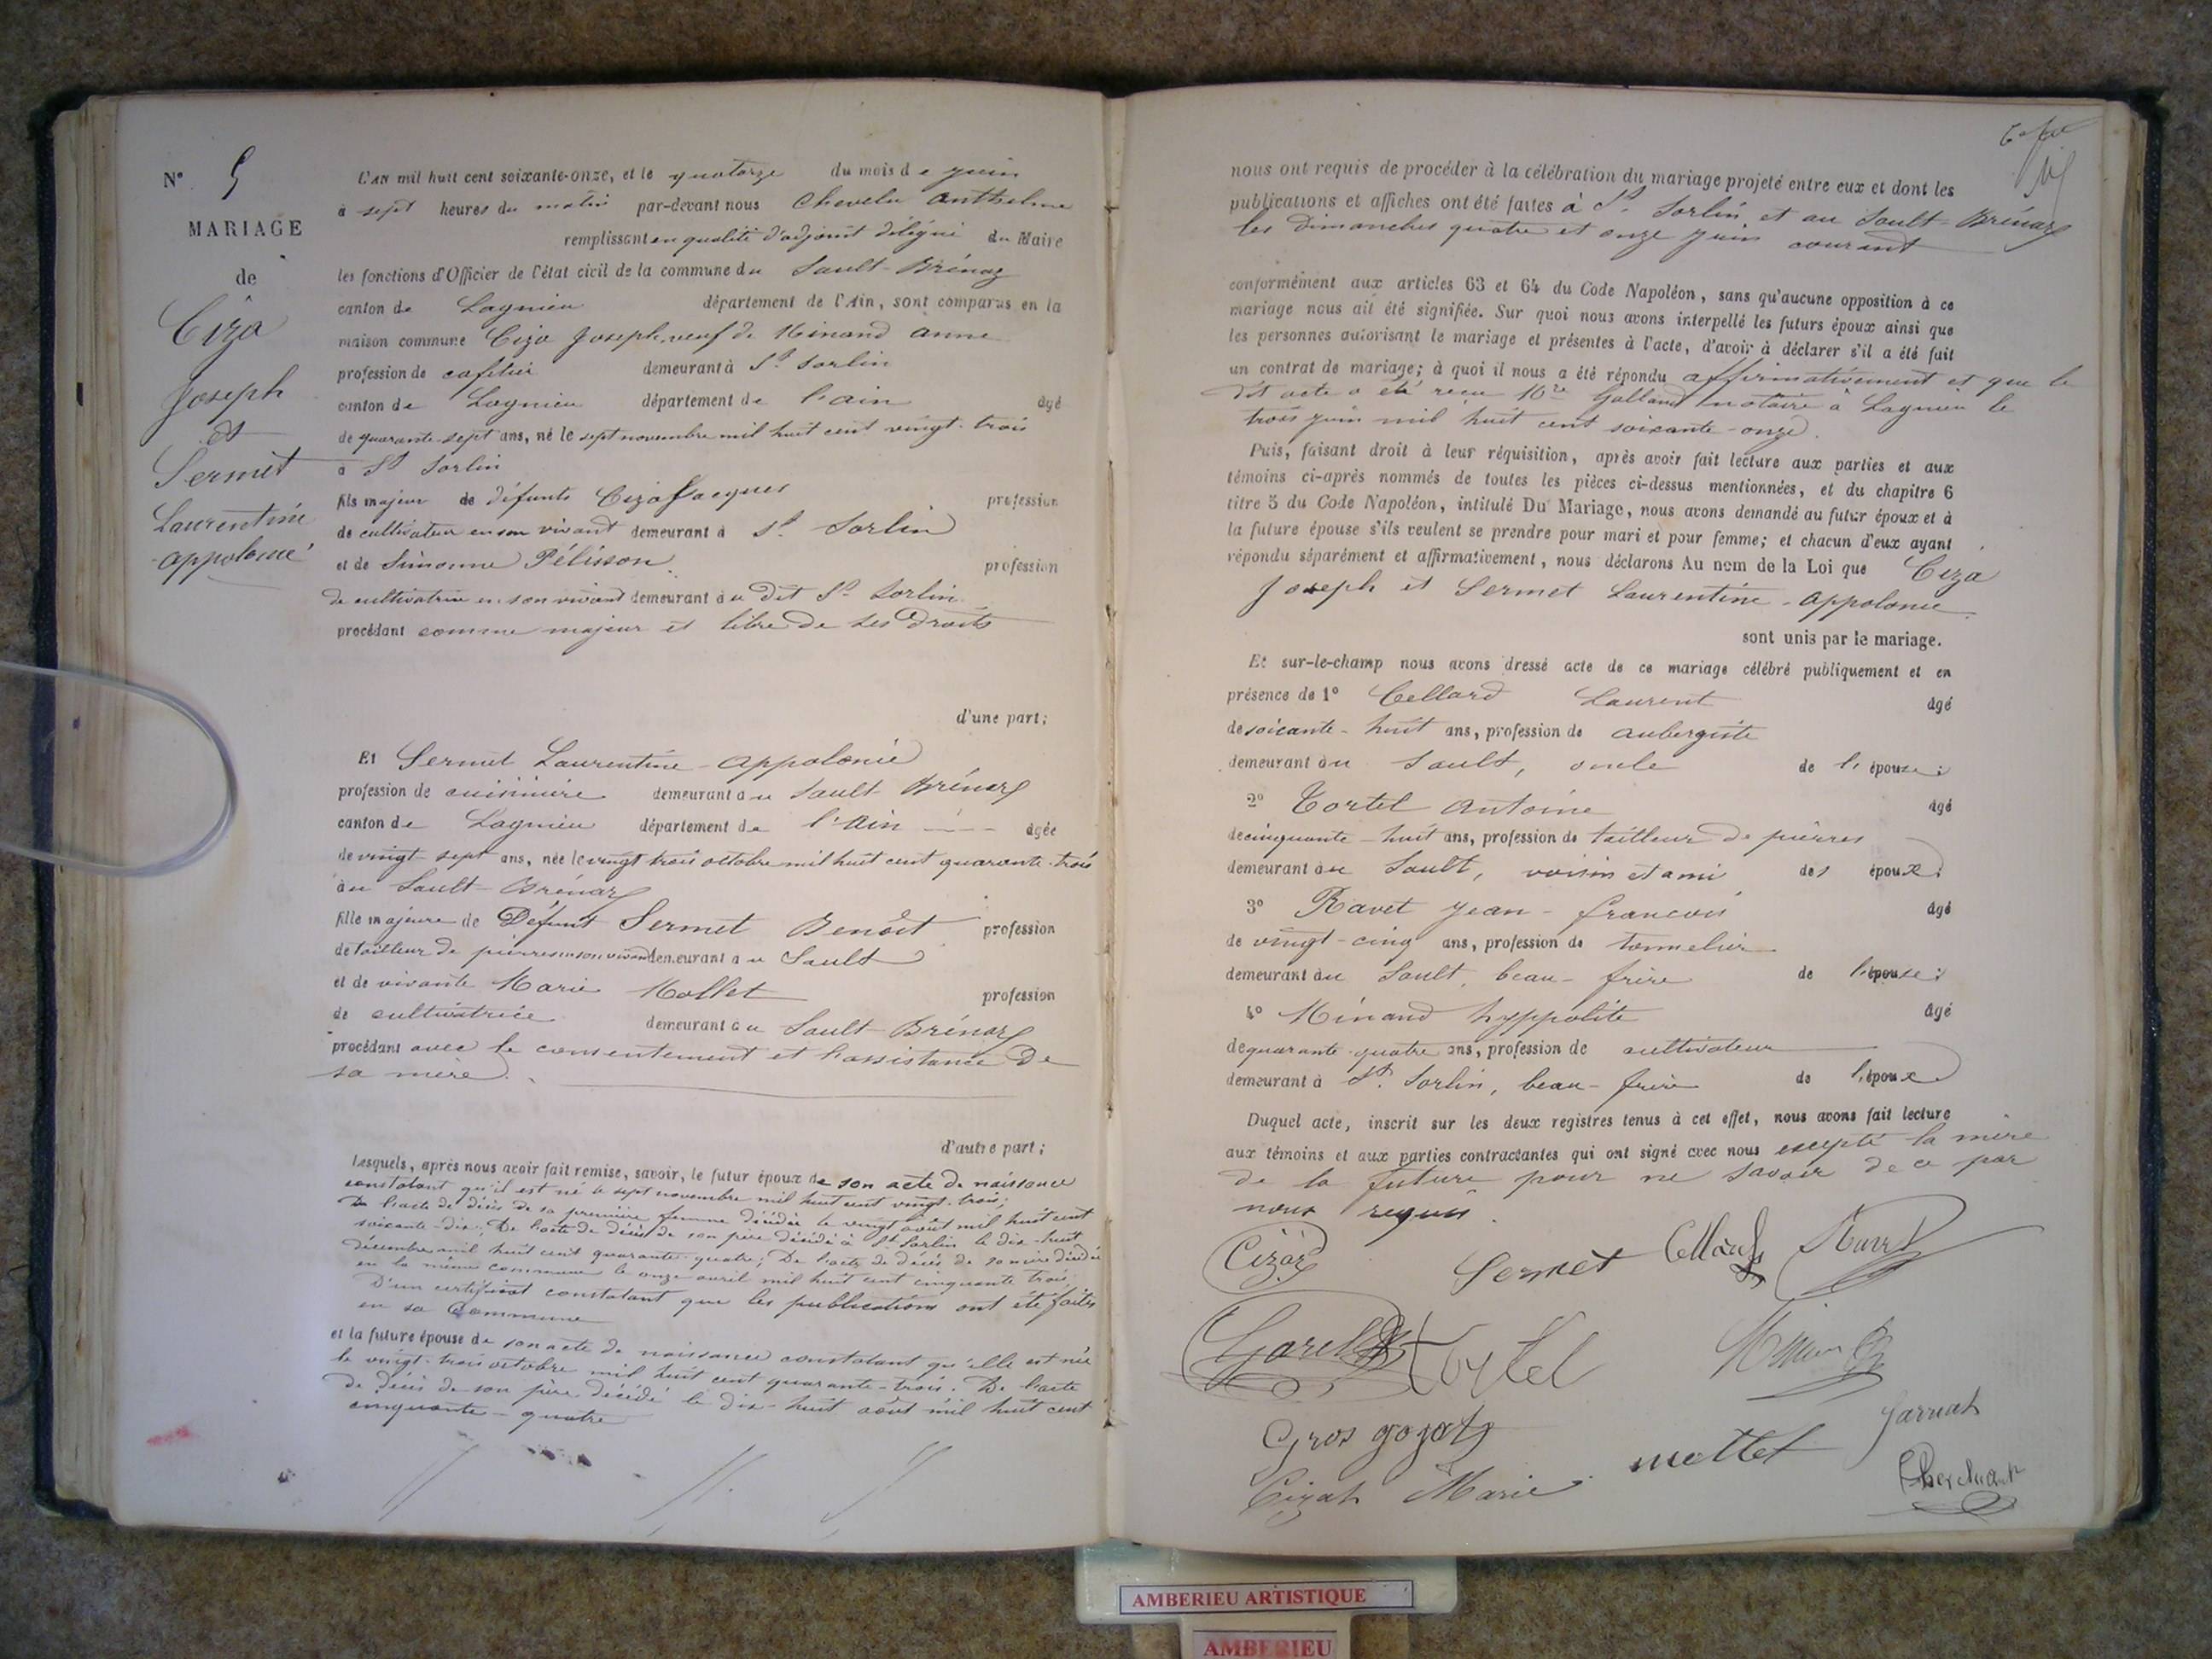 N° 5
MARIAGE
de
Ciza
Joseph
et
Sermet
Laurentine
appolonie
L'AN mil huit cent soixante-onze, et le quatorze du mois de juin
à sept heures du matin par-devant nous Chevelu Anthelme
remplissant en qualité d'adjoint délégué du Maire
les fonctions d'Officier de l'état civil de la commune du Sault-Brénaz
canton de Lagnieu département de l'Ain, sont comparus en la
maison commune Ciza Joseph veuf de Minand anne
profession de cafetier demeurant à St Sorlin
canton de Lagnieu département de l'ain âgé
de quarante-sept ans, né le sept novembre mil huit cent vingt-trois
à St Sorlin
fils majeur de défunts Ciza Jacques profession
de cultivateur en son vivant demeurant à St Sorlin
et de Simonne Pélisson profession
de cultivatrice en son vivant demeurant au dit St Sorlin
procédant comme majeur et libre de ses droits
d'une part;
Et Sermet Laurentine-appolonie
profession de cuisinière demeurant au Sault Brénaz
canton de Lagnieu département de l'Ain âgée
de vingt-sept ans, née le vingt trois octobre mil huit cent quarante-trois
au Sault-Brénaz
fille majeure de Défunt Sermet Benoît profession
de tailleur de pierres en son vivant demeurant au Sault
et de vivante Marie Mollet profession
de cultivatrice demeurant au Sault-Brénaz
procédant avec le consentement et l'assistance de
sa mère
d'autre part;
Lesquels, après nous avoir fait remise, savoir, le futur époux de son acte de naissance
constatant qu'il est né le sept novembre mil huit cent vingt-trois;
De l'acte de décès de sa première femme décédée le vingt août mil huit cent
soixante-dix; De l'acte de décès de son père décédé à St Sorlin le dix-huit
décembre mil huit cent quarante-quatre; De l'acte de décès de sa mère décédée
en la même commune le onze avril mil huit cent cinquante trois
D'un certificat constatant que les publications ont été faites
en sa Commune
et la future épouse de son acte de naissance constatant qu'elle est née
le vingt-trois octobre mil huit cent quarante-trois. De l'acte
de décès de son père décédé le dix-huit août mil huit cent
cinquante-quatre
nous ont requis de procéder à la célébration du mariage projeté entre eux et dont les
publications et affiches ont été faites à St Sorlin et au Sault-Brénaz
les dimanches quatre et onze juin courant
conformément aux articles 63 et 64 du Code Napoléon, sans qu'aucune opposition à ce
mariage nous ait été signifiée. Sur quoi nous avons interpellé les futurs époux ainsi que
les personnes autorisant le mariage et présentes à l'acte, d'avoir à déclarer s'il a été fait
un contrat de mariage; à quoi il nous a été répondu affirmativement et que le
dit acte a été reçu Galland notaire à Lagnieu le
trois juin mil huit cent soixante-onze.
Puis, faisant droit à leur réquisition, après avoir fait lecture aux parties et aux
témoins ci-après nommés de toutes les pièces ci-dessus mentionnées, et du chapitre 6
titre 5 du Code Napoléon, intitulé Du Mariage, nous avons demandé au futur époux et à
la future épouse s'ils veulent se prendre pour mari et pour femme; et chacun d'eux ayant
répondu séparément et affirmativement, nous déclarons Au nom de la Loi que Ciza
Joseph et Sermet Laurentine-Appolonie
sont unis par le mariage.
Et sur-le-champ nous avons dressé acte de ce mariage célébré publiquement et en
présence de 1° Cellard Laurent âgé
de soixante-huit ans, profession de aubergiste
demeurant au Sault, oncle de l'épouse;
2° Tortel Antoine âgé
de cinquante-huit ans, profession de tailleur de pierres
demeurant au Sault, voisin et ami des époux;
3° Ravet Jean-françois âgé
de vingt-cinq ans, profession de tonnelier
demeurant au Sault, beau-frère de l'épouse;
4° Minand hyppolite âgé
de quarante-quatre ans, profession de cultivateur
demeurant à St Sorlin, beau-frère de l'époux
Duquel acte, inscrit sur les deux registres tenus à cet effet, nous avons fait lecture
aux témoins et aux parties contractantes qui ont signé avec nous excepté la mère
de la future pour ne savoir de ce par
nous requis.
Sermet
Tortel
Gros gojat
mottet
Cizat Marie
AMBERIEU ARTISTIQUE
AMBERIEU